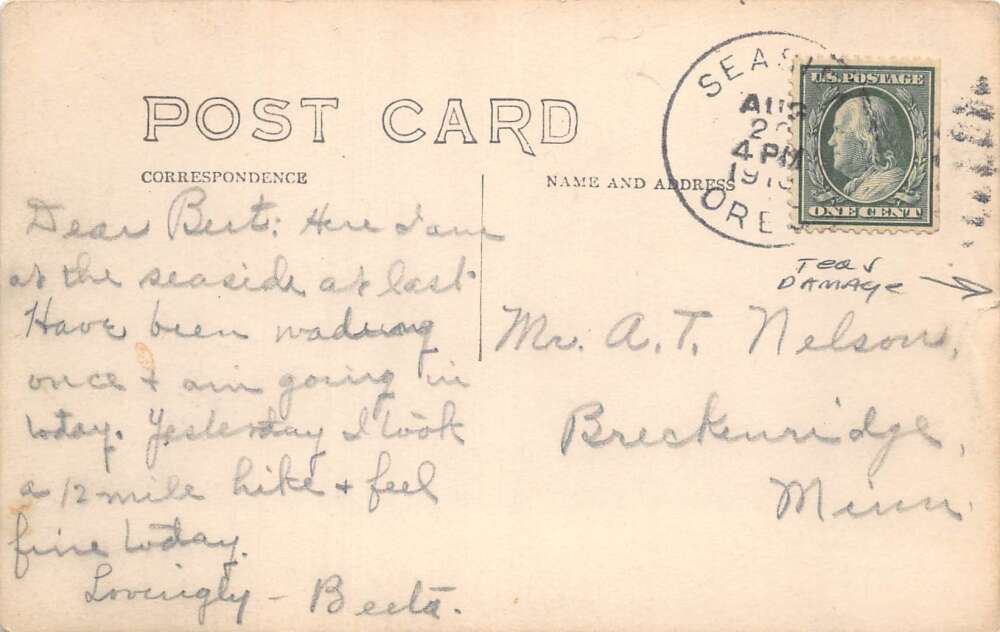 POST CARD
CORRESPONDENCE
NAME AND ADDRESS
SEASI
AUG
4 PM
191
ORE
U.S. POSTAGE
ONE CENT
Dear Bert: Here I am
at the seaside at last
Have been wading
once + am going in
today. Yesterday I took
a 12-mile hike + feel
fine today.
Lovingly - Beeta.
TEAR
DAMAGE
Mr. A. T. Nelson,
Breckenridge,
Minn.